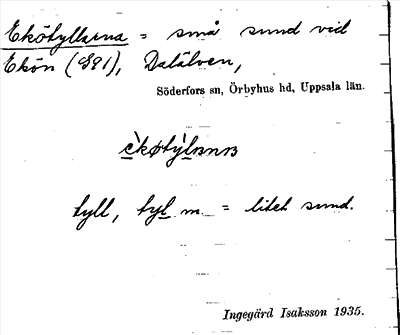 Ekötyllarna = små sund vid
Ekön (S91), Dalälven,
Söderfors sn, Örbyhus hd, Uppsala län.
tyll, m. = litet sund.
Ingegärd Isaksson 1935.